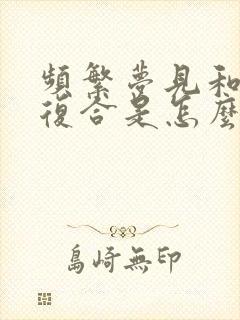 頻繁夢見和
復合是怎麼
島崎無印